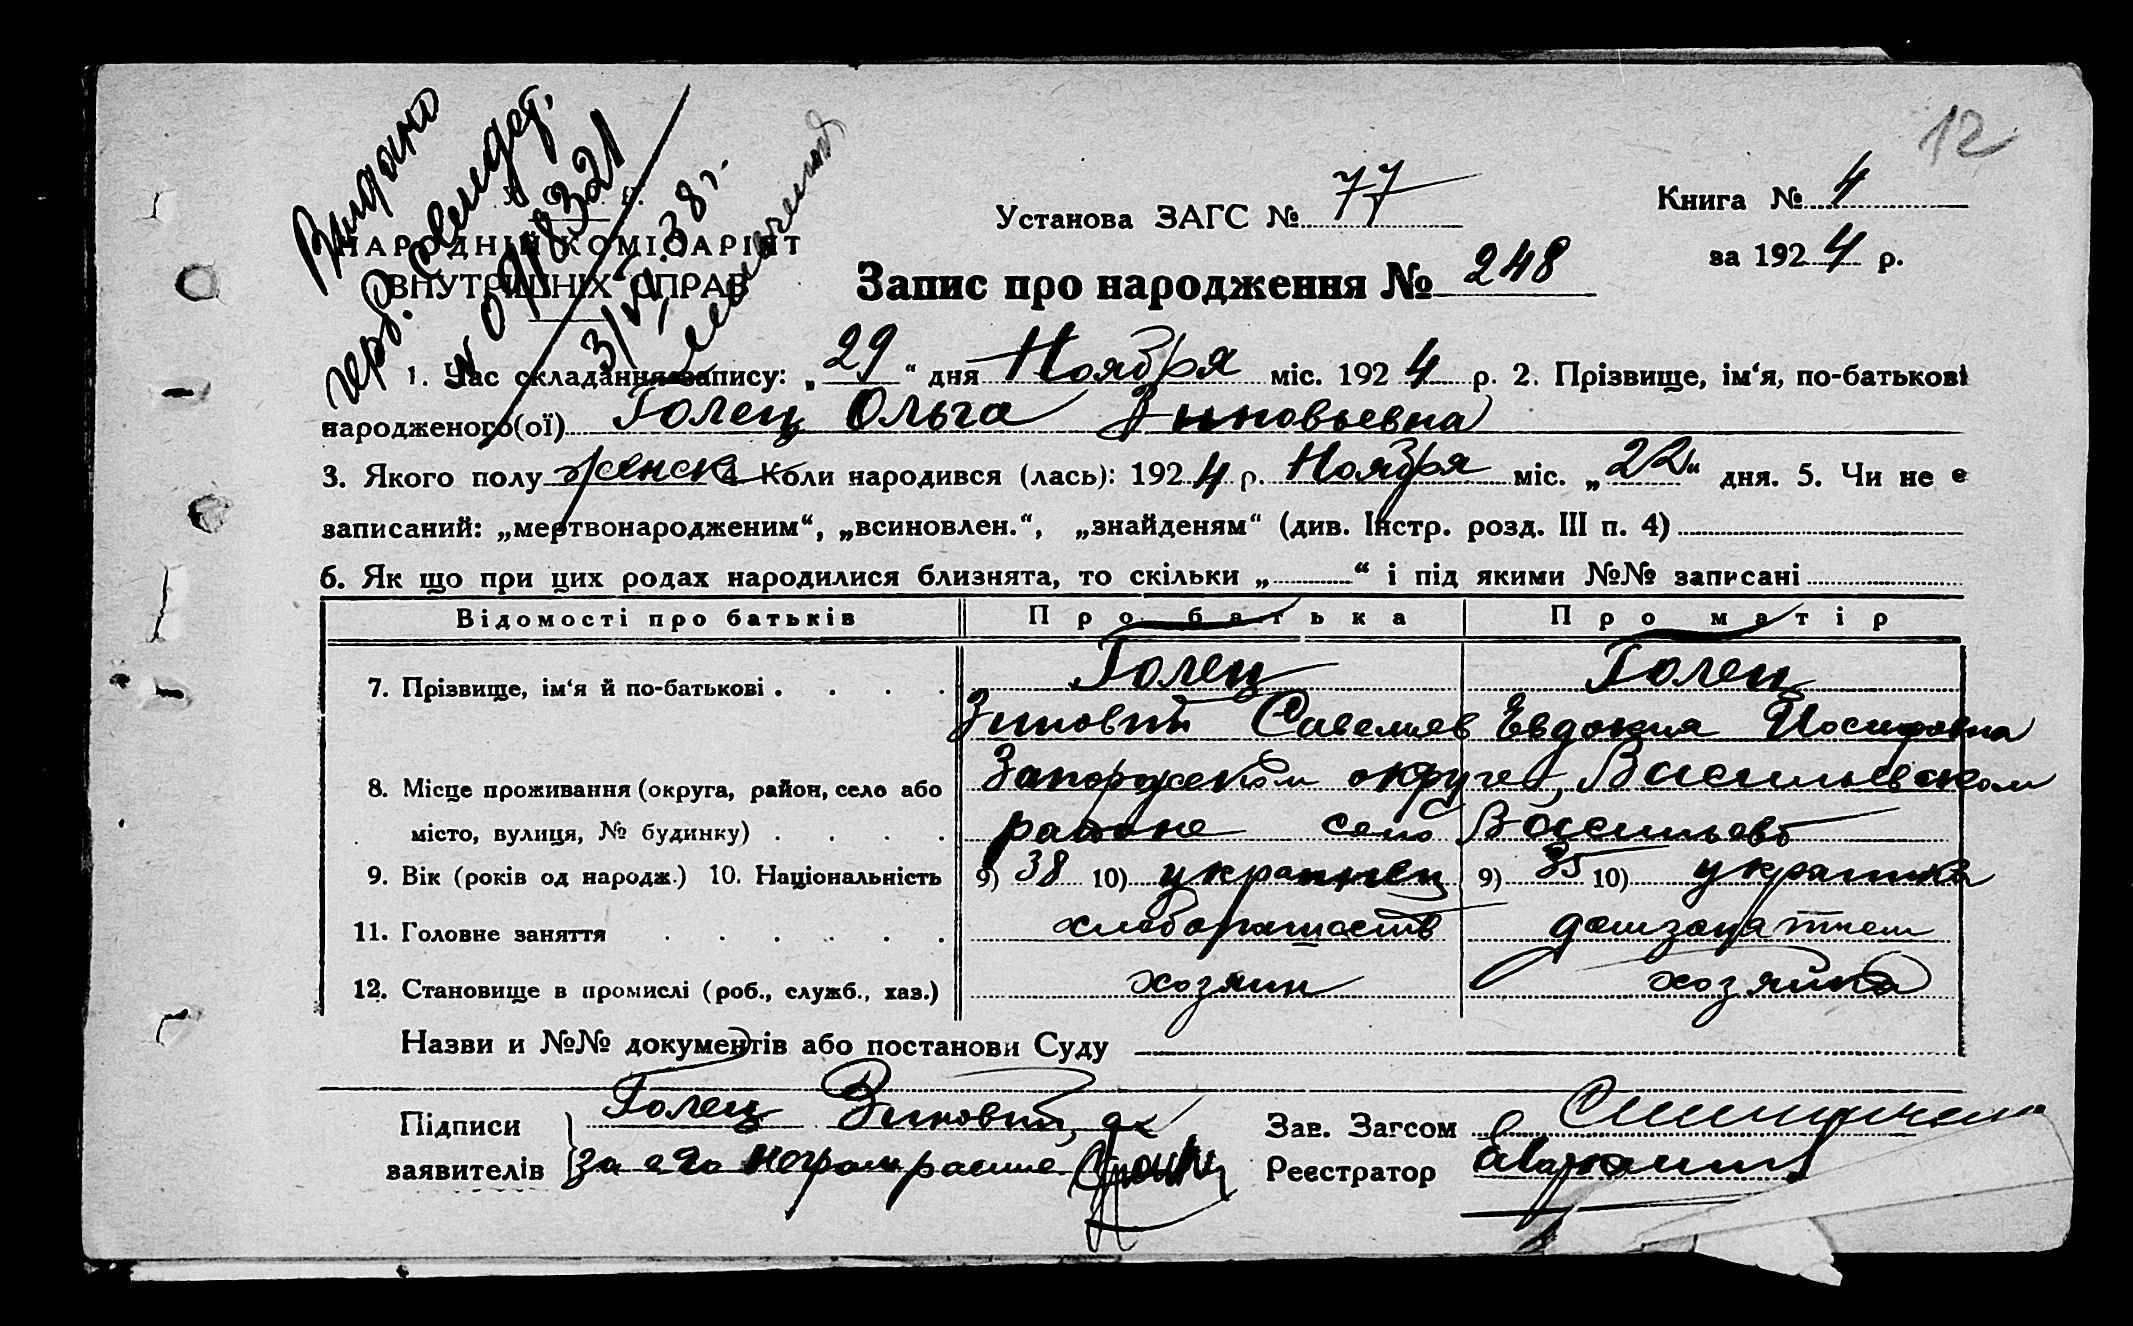 Видано
герб. свидет.
N 018321
3/VI 38 г.
12
У. С. Р. Р.
НАРОДНІЙ КОМІСАРІЯТ
ВНУТРІШНІХ СПРАВ
Установа ЗАГС № 77
Книга № 4
за 1924 р.
Запис про народження № 248
1. Час складання запису: „29“ дня Ноября міс. 1924 р. 2. Прізвище, ім‘я, по-батькові
народженого(ої) Голец Ольга Зиновьевна
3. Якого полу женск 4. Коли народився (лась): 1924 р. Ноября міс. „22“ дня. 5. Чи не є
записаний: „мертвонародженим“, „всиновлен.“, „знайденям“ (див. Інстр. розд. III п. 4)
6. Як що при цих родах народилися близнята, то скільки „ “ і під якими №№ записані
Відомості про батьків Про батька Про матір
7. Прізвище, ім‘я й по-батькові . . . . Голец Голец
Зиновий Савелиев Евдокия Иосифовна
8. Місце проживання (округа, район, село або Запорожском округе, Васильевском
місто, вулиця, № будинку) . . . . районе село Васильевк
9. Вік (років од народж.) 10. Національність 9) 38 10) украинец 9) 35 10) украинка
11. Головне заняття . . . . . . хлебопашеств домзанятием
12. Становище в промислі (роб., служб., хаз.) хозяин хозяйка
Назви и №№ документів або постанови Суду
Підписи Голец Зиновий, а
заявителів за его неграм расп
Зав. Загсом
Реєстратор